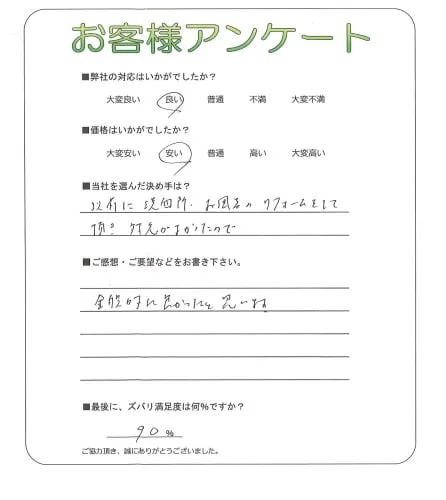 お客様アンケート
■弊社の対応はいかがでしたか？
大変良い 良い 普通 不満 大変不満
■価格はいかがでしたか？
大変安い 安い 普通 高い 大変高い
■当社を選んだ決め手は？
以前に洗面所・お風呂のリフォームをして
頂き 対応がよかったので
■ご感想・ご要望などをお書き下さい。
全般的に良かったと思います
■最後に、ズバリ満足度は何％ですか？
90 %
ご協力頂き、誠にありがとうございました。